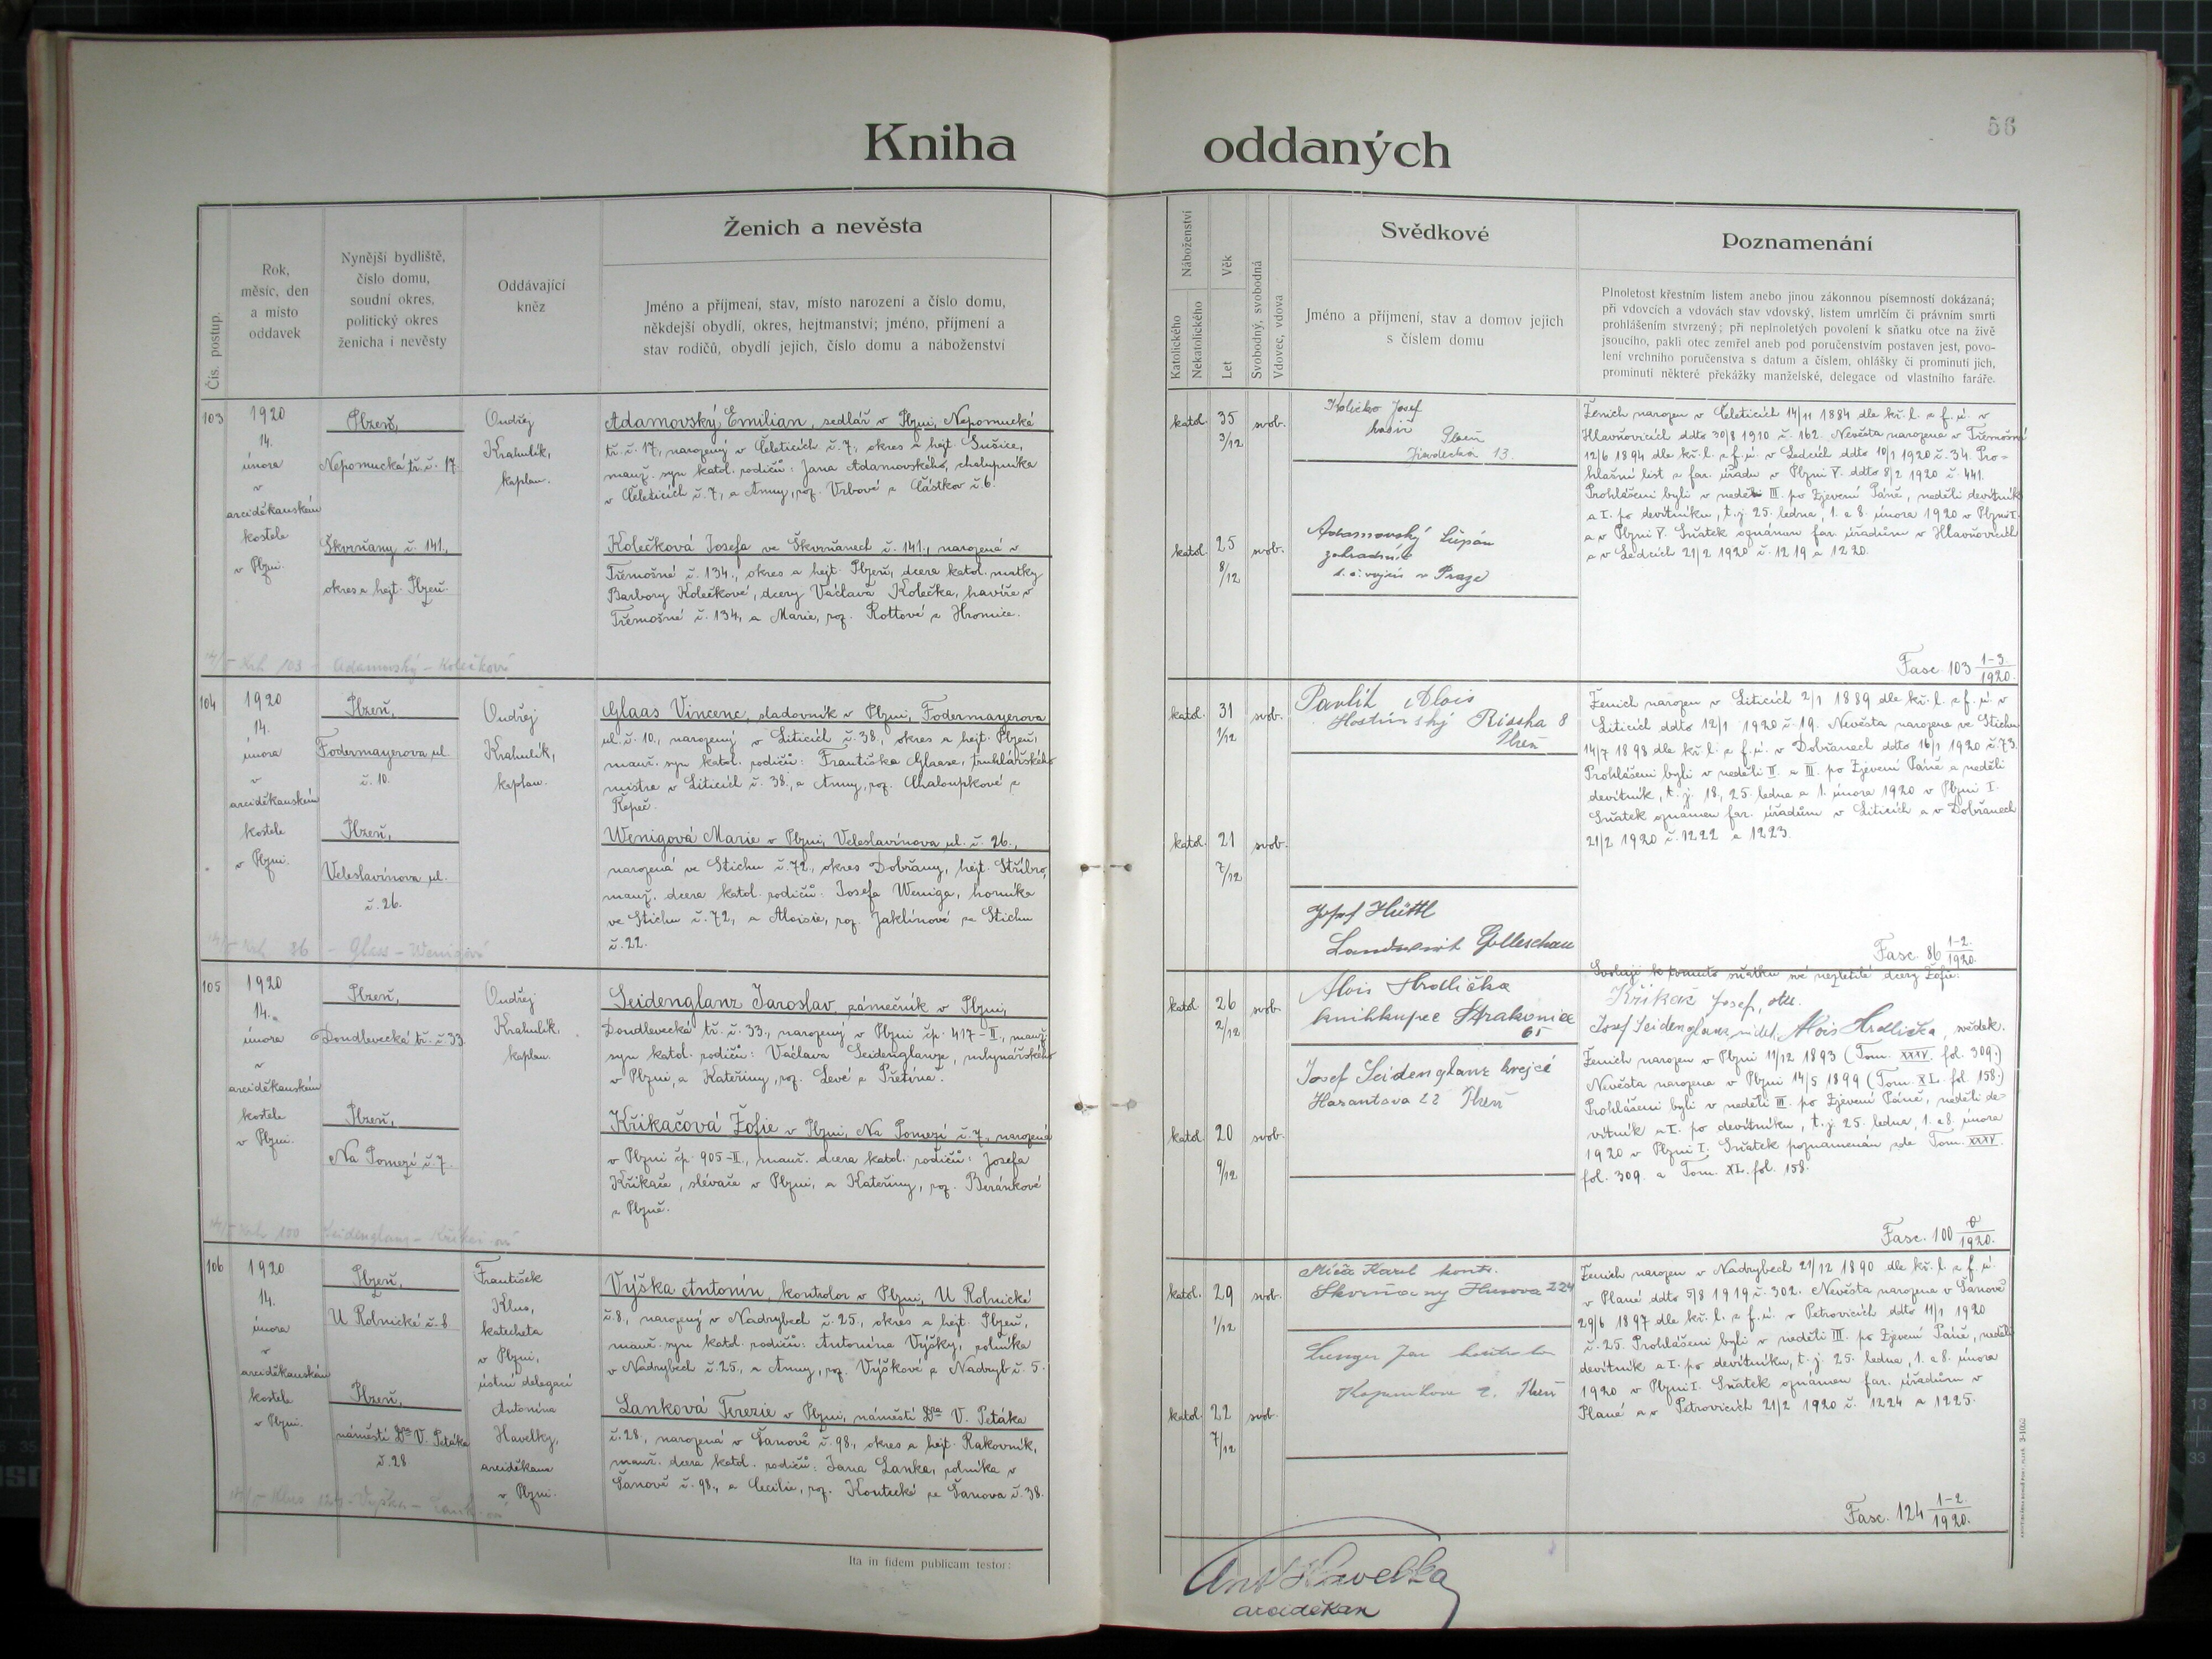 Kniha oddaných
56
Čís. postup.
Rok,
měsíc, den
a místo
oddavek
Nynější bydliště,
číslo domu,
soudní okres,
politický okres
ženicha i nevěsty
Oddávající
kněz
Ženich a nevěsta
Jméno a příjmení, stav, místo narození a číslo domu,
někdejší obydlí, okres, hejtmanství; jméno, příjmení a
stav rodičů, obydlí jejich, číslo domu a náboženství
Náboženství
Katolického
Nekatolického
Věk
Let
Svobodný, svobodná
Vdovec, vdova
Svědkové
Jméno a příjmení, stav a domov jejich
s číslem domu
Poznamenání
Plnoletost křestním listem anebo jinou zákonnou písemností dokázaná;
při vdovcích a vdovách stav vdovský, listem umrlčím či právním smrti
prohlášením stvrzený; při neplnoletých povolení k sňatku otce na živě
jsoucího, pakli otec zemřel aneb pod poručenstvím postaven jest, povo-
lení vrchního poručenstva s datum a číslem, ohlášky či prominutí jich,
prominutí některé překážky manželské, delegace od vlastního faráře.
103
1920
14.
února
v
arciděkanském
kostele
v Plzni.
Plzeň,
Nepomucká tř. č. 17.
Škvrňany č. 141.,
okres a hejt. Plzeň.
Ondřej
Krahulík,
kaplan.
Adamovský Emilian, sedlář v Plzni, Nepomucké
tř. č. 17, narozený v Čeleticích č. 7, okres a hejt. Sušice,
manž. syn katol. rodičů: Jana Adamovského, chalupníka
v Čeleticích č. 7, a Anny, roz. Vrbové z Částkov č. 6.
Kolečková Josefa ve Škvrňanech č. 141., narozená v
Třemošné č. 134., okres a hejt. Plzeň, dcera katol. matky
Barbory Kolečkové, dcery Václava Kolečka, havíře v
Třemošné č. 134, a Marie, roz. Rottové z Hromice.
103 Adamovský - Kolečková
katol. 35 3/12 svob.
katol. 25 8/12 svob.
Kolečko Josef
Plzeň
13.
Adamovský Štěpán
zahradník
v Praze
Ženich narozen v Čeleticích 14/11 1884 dle kř. l. z f. ú. v
Hlavňovicích ddto 30/8 1910 č. 162. Nevěsta narozena v Třemošné
12/6 1894 dle kř. l. z f. ú. v Ledcích ddto 10/1 1920 č. 34. Pro-
hlašní list z far. úřadu v Plzni V. ddto 8/2 1920 č. 441.
Prohlášeni byli v neděli III. po Zjevení Páně, neděli devítník
a I. po devítníku, t. j. 25. ledna, 1. a 8. února 1920 v Plzni I.
a v Plzni V. Sňatek oznámen far. úřadům v Hlavňovicích
a v Ledcích 21/2 1920 č. 1219 a 1220.
Fasc. 103 1-3/1920.
104
1920
14.
února
v
arciděkanském
kostele
v Plzni.
Plzeň,
Fodermayerova ul.
č. 10.
Plzeň,
Veleslavínova ul.
č. 26.
Ondřej
Krahulík,
kaplan.
Glaas Vincenc, sladovník v Plzni, Fodermayerova
ul. č. 10., narozený v Liticích č. 38., okres a hejt. Plzeň,
manž. syn katol. rodičů: Františka Glaase, truhlářského
mistra v Liticích č. 38., a Anny, roz. Chaloupkové z
Řepeč.
Wenigová Marie v Plzni, Veleslavínova ul. č. 26.,
narozená ve Stichu č. 72., okres Dobřany, hejt. Stříbro,
manž. dcera katol. rodičů: Josefa Weniga, horníka
ve Stichu č. 72, a Aloisie, roz. Jaklínové ze Stichu
č. 22.
86 - Glaas - Wenigová
katol. 31 1/12 svob.
katol. 21 7/12 svob.
Pavlík Alois
Hostinský 8
Plzeň
Josef Hüttl
Landwirt Golleschau
Ženich narozen v Liticích 2/1 1889 dle kř. l. z f. ú. v
Liticích ddto 12/1 1920 č. 19. Nevěsta narozena ve Stichu
14/7 1898 dle kř. l. z f. ú. v Dobřanech ddto 16/1 1920 č. 73.
Prohlášeni byli v neděli II. a III. po Zjevení Páně a neděli
devítník, t. j. 18., 25. ledna a 1. února 1920 v Plzni I.
Sňatek oznámen far. úřadům v Liticích a v Dobřanech
21/2 1920 č. 1222 a 1223.
Fasc. 86 1-2/1920.
105
1920
14.
února
v
arciděkanském
kostele
v Plzni.
Plzeň,
Doudlevecká tř. č. 33
Plzeň,
Na Pomezí č. 7.
Ondřej
Krahulík,
kaplan.
Seidenglanz Jaroslav, zámečník v Plzni,
Doudlevecká tř. č. 33., narozený v Plzni čp. 417-II., manž.
syn katol. rodičů: Václava Seidenglanze, mlynářského
v Plzni, a Kateřiny, roz. Levé z Přetína.
Křikačová Žofie v Plzni, Na Pomezí č. 7., narozená
v Plzni čp. 905-II., manž. dcera katol. rodičů: Josefa
Křikače, slévače v Plzni, a Kateřiny, roz. Beránkové
z Plzně.
100 Seidenglanz - Křikačová
katol. 26 2/12 svob.
katol. 20 9/12 svob.
Alois Hrdlička
knihkupec Strakonice
65
Josef Seidenglanz krejčí
Harantova 22 Plzeň
Svoluji k tomuto sňatku své nezletilé dcery Žofie:
Křikač Josef, otec.
Josef Seidenglanz, svědek, Alois Hrdlička, svědek.
Ženich narozen v Plzni 11/12 1893 (Tom. XXXV. fol. 309.)
Nevěsta narozena v Plzni 14/5 1899 (Tom. XL. fol. 158.)
Prohlášeni byli v neděli III. po Zjevení Páně, neděli de-
vítník a I. po devítníku, t. j. 25. ledna, 1. a 8. února
1920 v Plzni I. Sňatek poznamenán zde Tom. XXXV.
fol. 309. a Tom. XL. fol. 158.
Fasc. 100 0/1920.
106
1920
14.
února
v
arciděkanském
kostele
v Plzni.
Plzeň,
U Rolnické č. 8
Plzeň,
náměstí Dra V. Petáka
č. 28
František
Klus,
katecheta
v Plzni,
ústní delegací
Antonína
Havelky,
arciděkana
v Plzni.
Výška Antonín, kontrolor v Plzni, U Rolnické
č. 8., narozený v Nadrybech č. 25., okres a hejt. Plzeň,
manž. syn katol. rodičů: Antonína Výšky, rolníka
v Nadrybech č. 25, a Anny, roz. Výškové z Nadryb č. 5.
Lanková Terezie v Plzni, náměstí Dra V. Petáka
č. 28., narozená v Šanově č. 98., okres a hejt. Rakovník,
manž. dcera katol. rodičů: Jana Lanka, rolníka v
Šanově č. 98., a Cecilie, roz. Koutecké ze Šanova č. 38.
124 - Výška - Lanková
katol. 29 1/12 svob.
katol. 22 7/12 svob.
Míča Karel
Skvrňany Husova 224
Jan
Plzeň
Ženich narozen v Nadrybech 21/12 1890 dle kř. l. z f. ú.
v Plané ddto 5/8 1919 č. 302. Nevěsta narozena v Šanově
29/6 1897 dle kř. l. z f. ú. v Petrovicích ddto 11/1 1920
č. 25. Prohlášeni byli v neděli III. po Zjevení Páně, neděli
devítník a I. po devítníku, t. j. 25. ledna, 1. a 8. února
1920 v Plzni I. Sňatek oznámen far. úřadům v
Plané a v Petrovicích 21/2 1920 č. 1224 a 1225.
Fasc. 124 1-2/1920.
Ita in fidem publicam testor:
Ant Havelka
arciděkan